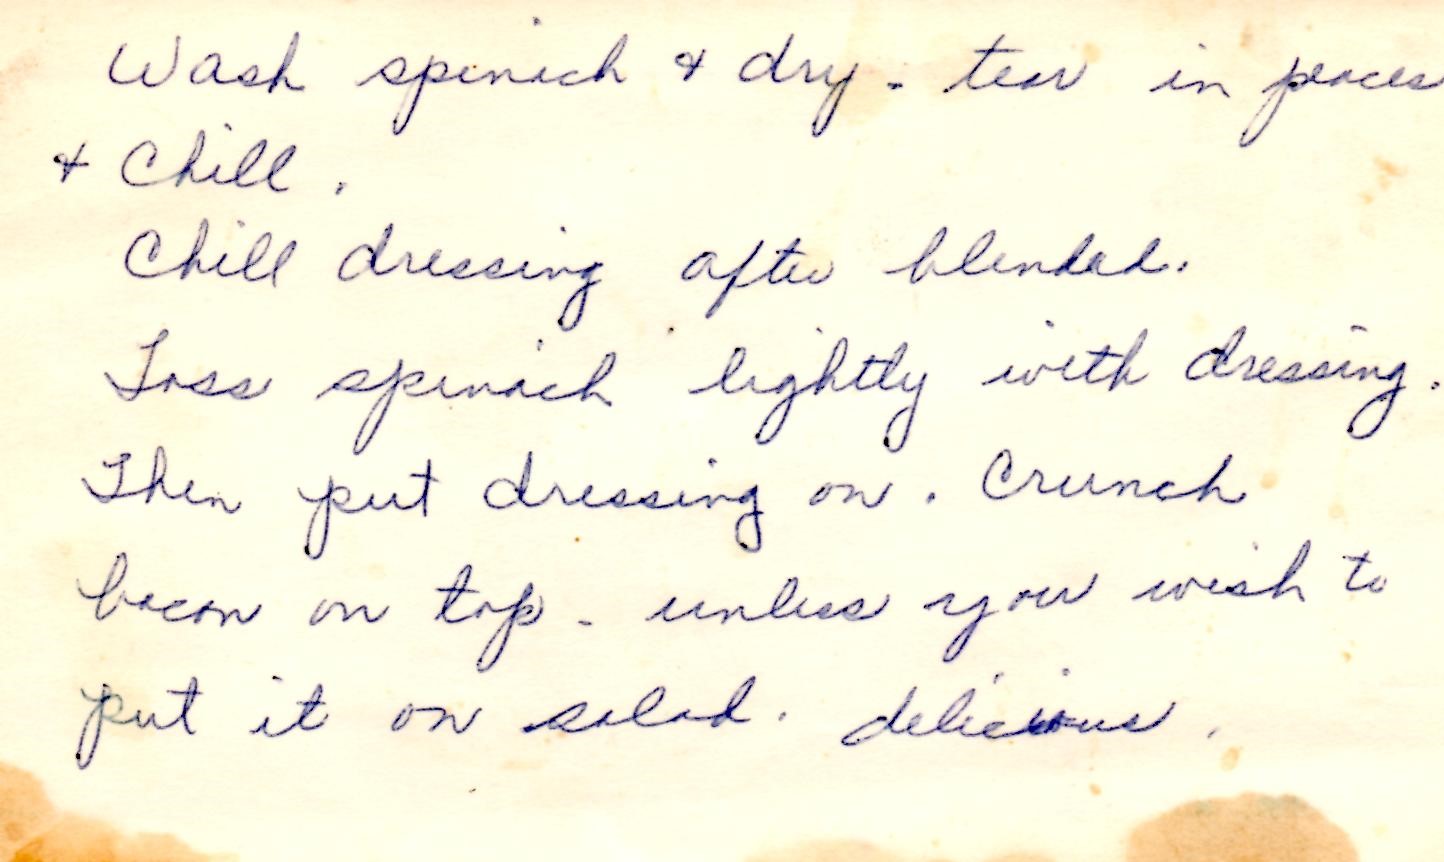 Wash spinach & dry - tear in peaces
& Chill.
Chill dressing after blended.
Toss spinach lightly with dressing.
Then put dressing on. Crunch
bacon on top - unless you wish to
put it on salad. delicious.